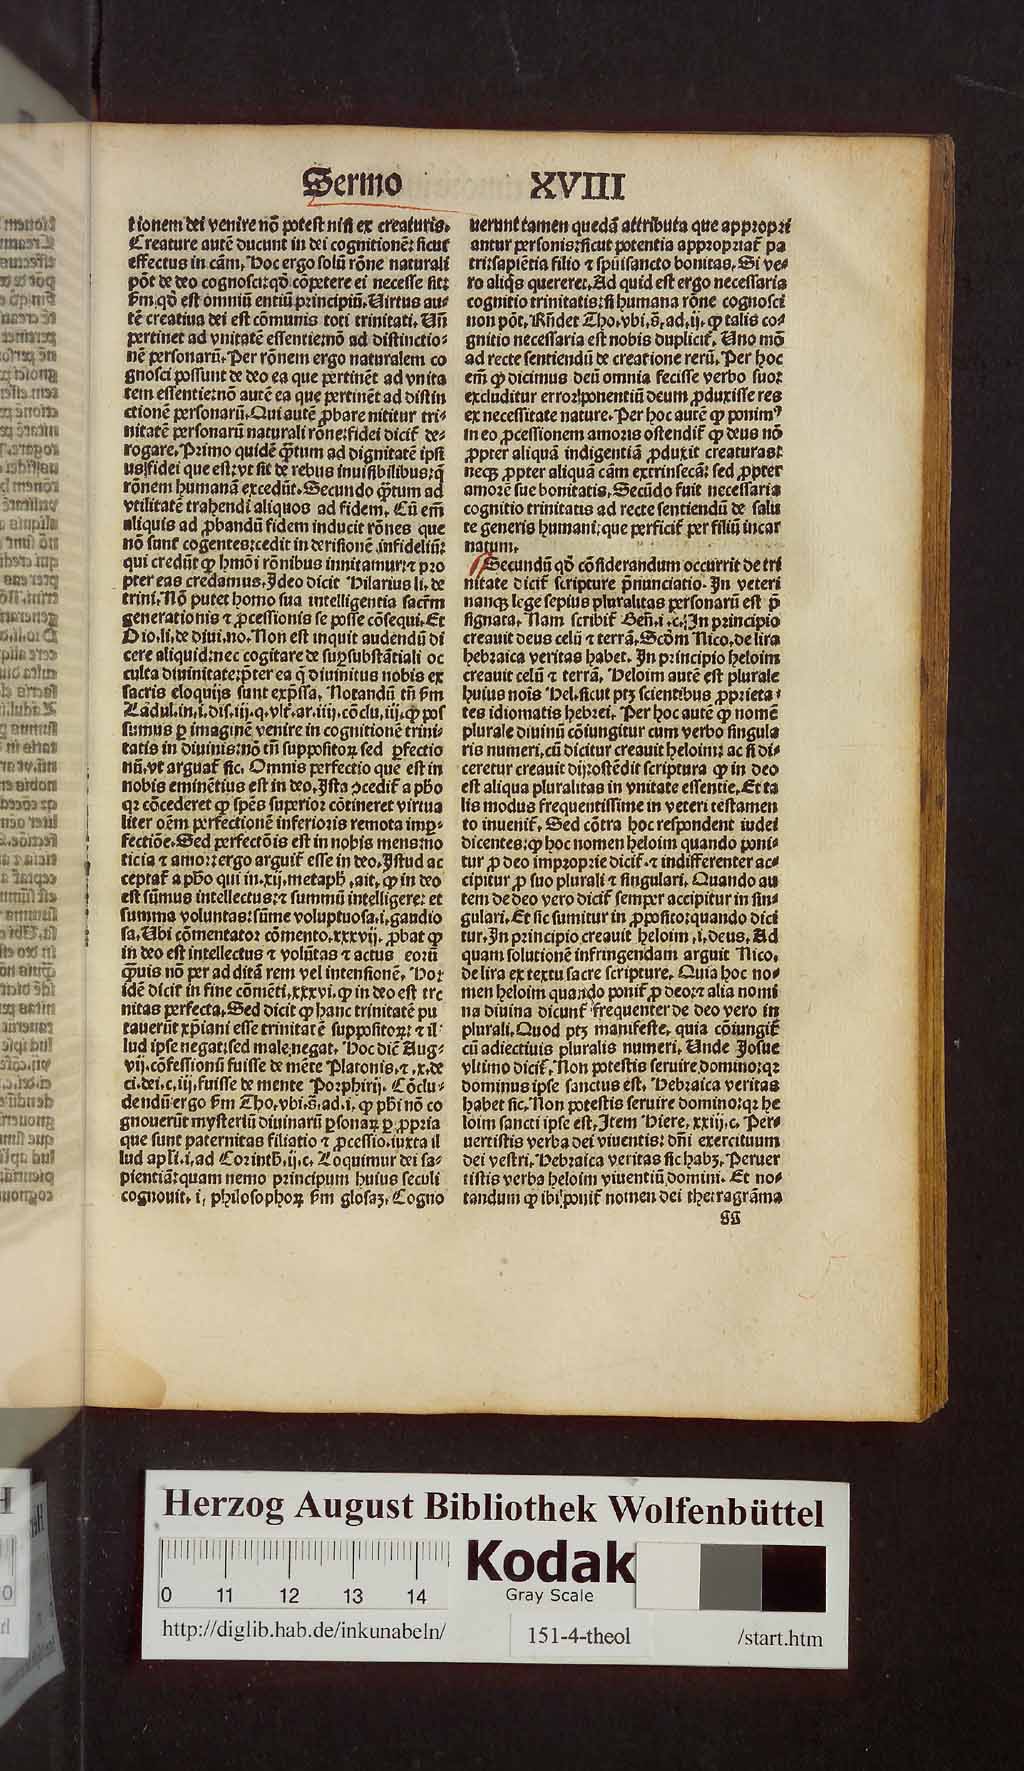 Sermo XVIII
tionem dei venire nō potest nisi ex creaturis.
Creature autē ducunt in dei cognitionē: sicut
effectus in cām. Hoc ergo solū rōne naturali
pōt de deo cognosci: qd̄ cōpetere ei necesse sit:
ſm qd̄ est omniū entiū principiū. Virtus au-
tē creatiua dei est cōmunis toti trinitati. Uñ
pertinet ad vnitatē essentie: nō ad distinctio-
nē personarū. Per rōnem ergo naturalem co
gnosci possunt de deo ea que pertinēt ad vnita
tem essentie: nō autē ea que pertinēt ad distin
ctionē personarū. Qui autē ꝓbare nititur tri-
nitatē personarū naturali rōne: fidei dicit̄ de-
rogare. Primo quidē q̄tum ad dignitatē ipsi
us fidei que est: vt sit de rebus inuisibilibus: q̄
rōnem humanā excedūt. Secundo q̄tum ad
vtilitatē trahendi aliquos ad fidem. Cū em̄
aliquis ad ꝓbandū fidem inducit rōnes que
nō sunt cogentes: cedit in derisionē infideliū:
qui credūt ꝙ hmōi rōnibus innitamur: ⁊ pro
pter eas credamus. Ideo dicit Hilarius li. de
trini. Nō putet homo sua intelligentia sacr̄m
generationis ⁊ ꝓcessionis se posse cōsequi. Et
Dio. li. de diui. no. Non est inquit audendū di
cere aliquid: nec cogitare de suꝑsubstātiali oc
culta diuinitate: p̄ter ea q̄ diuinitus nobis ex
sacris eloquijs sunt exp̄ssa. Notandū tn̄ ſm
Lādul. in. i. dis. iij. q. vlt̄. ar. iiij. cōclu. iij. ꝙ pos
sumus ꝑ imaginē venire in cognitionē trini-
tatis in diuinis: nō tm̄ suppositoꝝ sed ꝑfectio
nū. vt arguat̄ sic. Omnis perfectio que est in
nobis eminētius est in deo. Ista ꝯcedit̄ a pħo
qꝛ cōcederet ꝙ spēs superior cōtineret virtua
liter oēm perfectionē inferioris remota impꝑ-
fectiōe. Sed perfectōis est in nobis mens: no
ticia ⁊ amor: ergo arguit̄ esse in deo. Istud ac
ceptat̄ a pħo qui in. xij. metaph̄. ait. ꝙ in deo
est sūmus intellectus: ⁊ summū intelligere: et
summa voluntas: sūme voluptuosa. i. gaudio
sa. Ubi cōmentator cōmento. xxxvij. ꝓbat ꝙ
in deo est intellectus ⁊ volūtas ⁊ actus eorū
q̄uis nō per additā rem vel intensionē. Hoꝛ
idē dicit̄ in fine cōmēti. xxxvi. ꝙ in deo est tre
nitas perfecta. Sed dicit ꝙ hanc trinitatē pu
tauerūt xp̄iani esse trinitatē suppositoꝝ: ⁊ il-
lud ipse negat: sed male negat. Hoc diē Aug-
vij. cōfessionū fuisse de mēte Platonis. ⁊. x. de
ci. dei. c. iij. fuisse de mente Porphirij. Cōclu-
dendū ergo ſm Tho. vbi. s̄. ad. i. ꝙ pħi nō co
gnouerūt mysteriū diuinarū ꝑsonaꝝ ꝑ ꝓpria
que sunt paternitas filiatio ⁊ ꝓcessio. iuxta il
lud apl̄i. i. ad Corinth̄. ij. c. Loquimur dei sa-
pientiā: quam nemo principum huius seculi
cognouit. i. philosophoꝝ ſm glosaꝫ. Cogno
uerunt tamen quedā attributa que appropri
antur personis: sicut potentia appropriat̄ pa
tri: sapiētia filio ⁊ spūisancto bonitas. Si ve-
ro aliq̄s quereret. Ad quid est ergo necessaria
cognitio trinitatis: si humana rōne cognosci
non pōt. Rn̄det Tho. vbi. s̄. ad. ij. ꝙ talis co-
gnitio necessaria est nobis duplicit̄. Uno mō
ad recte sentiendū de creatione rerū. Per hoc
em̄ ꝙ dicimus deū omnia fecisse verbo suo:
excluditur error ponentiū deum ꝓduxisse res
ex necessitate nature. Per hoc autē ꝙ ponimꝰ
in eo ꝓcessionem amoris ostendit̄ ꝙ deus nō
ꝓpter aliquā indigentiā ꝓduxit creaturas:
neqꝫ ꝓpter aliquā cām extrinsecā: sed ꝓpter
amorē sue bonitatis. Secūdo fuit necessaria
cognitio trinitatis ad recte sentiendū de salu
te generis humani: que perficit̄ per filiū incar
natum.
Secundū qd̄ cōsiderandum occurrit de tri
nitate dicit̄ scripture p̄nunciatio. In veteri
nanqꝫ lege sepius pluralitas personarū est p̄
signata. Nam scribit̄ Geñ. i. c. In principio
creauit deus celū ⁊ terrā. Scd̄m Nico. de lira
hebraica veritas habet. In principio heloim
creauit celū ⁊ terrā. Heloim autē est plurale
huius nois̄ Hel. sicut ptꝫ scientibus ꝓprieta-
tes idiomatis hebrei. Per hoc autē ꝙ nomē
plurale diuinū cōiungitur cum verbo singula
ris numeri, cū dicitur creauit heloim: ac si di-
ceretur creauit dij: ostēdit scriptura ꝙ in deo
est aliqua pluralitas in vnitate essentie. Et ta
lis modus frequentissime in veteri testamen
to inuenit̄. Sed cōtra hoc respondent iudei
dicentes: ꝙ hoc nomen heloim quando poni-
tur ꝓ deo improprie dicit̄. ⁊ indifferenter ac-
cipitur ꝓ suo plurali ⁊ singulari. Quando au
tem de deo vero dicit̄ semper accipitur in sin-
gulari. Et sic sumitur in ꝓposito: quando dici
tur. In principio creauit heloim. i. deus. Ad
quam solutionē infringendam arguit Nico.
de lira ex textu sacre scripture. Quia hoc no-
men heloim quando ponit̄ ꝓ deo: ⁊ alia nomi
na diuina dicunt̄ frequenter de deo vero in
plurali. Quod ptꝫ manifeste, quia cōiungit̄
cū adiectiuis pluralis numeri. Unde Josue
vltimo dicit̄. Non potestis seruire domino: qꝛ
dominus ipse sanctus est. Hebraica veritas
habet sic. Non potestis seruire domino: qꝛ he
loim sancti ipse est. Item Hiere. xxiij. c. Per-
uertistis verba dei viuentis: dn̄i exercituum
dei vestri. Hebraica veritas sic habꝫ. Peruer
tistis verba heloim viuentiū domini. Et no-
tandum ꝙ ibi ponit̄ nomen dei thetragrāma
GG
Herzog August Bibliothek Wolfenbüttel
0 11 12 13 14
Kodak
Gray Scale
http://diglib.hab.de/inkunabeln/ 151-4-theol /start.htm